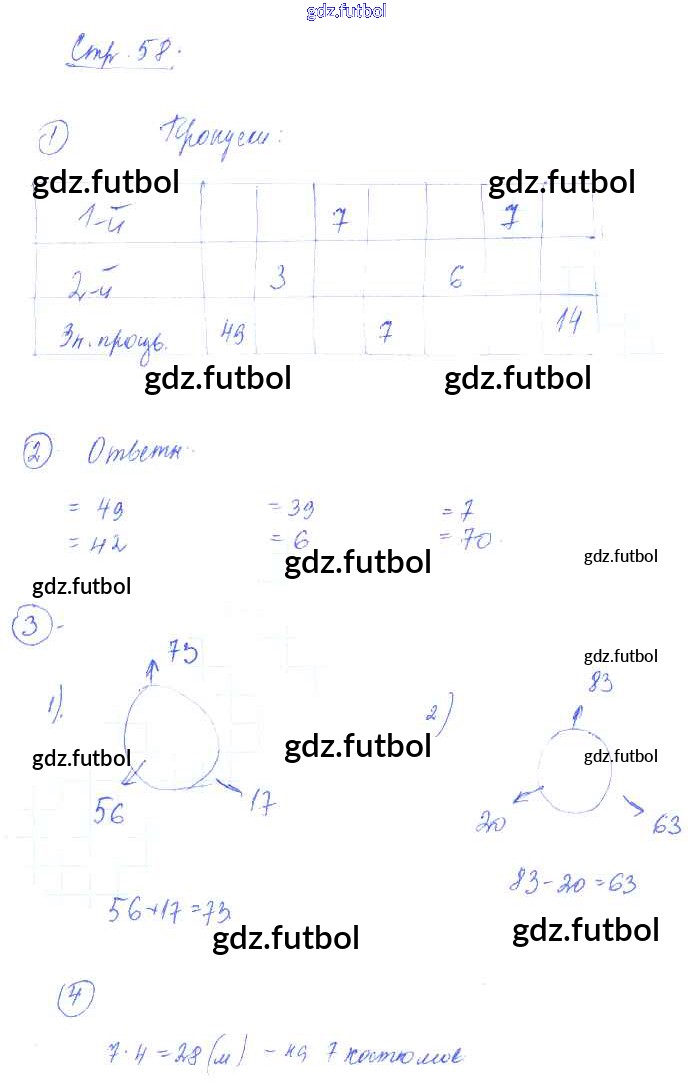 gdz.futbol
Стр. 58.
① Пропуски:
gdz.futbol gdz.futbol
1-й 7 7
2-й 3 6
Зн. произв. 49 7 14
gdz.futbol gdz.futbol
② Ответы:
= 49 = 39 = 7
= 42 = 6 = 70.
gdz.futbol gdz.futbol
gdz.futbol
③
gdz.futbol
73 83
1). 2)
gdz.futbol gdz.futbol gdz.futbol
56 17 20 63
83-20=63
56+17=73
gdz.futbol gdz.futbol
④
7·4=28(м) - на 7 костюмов